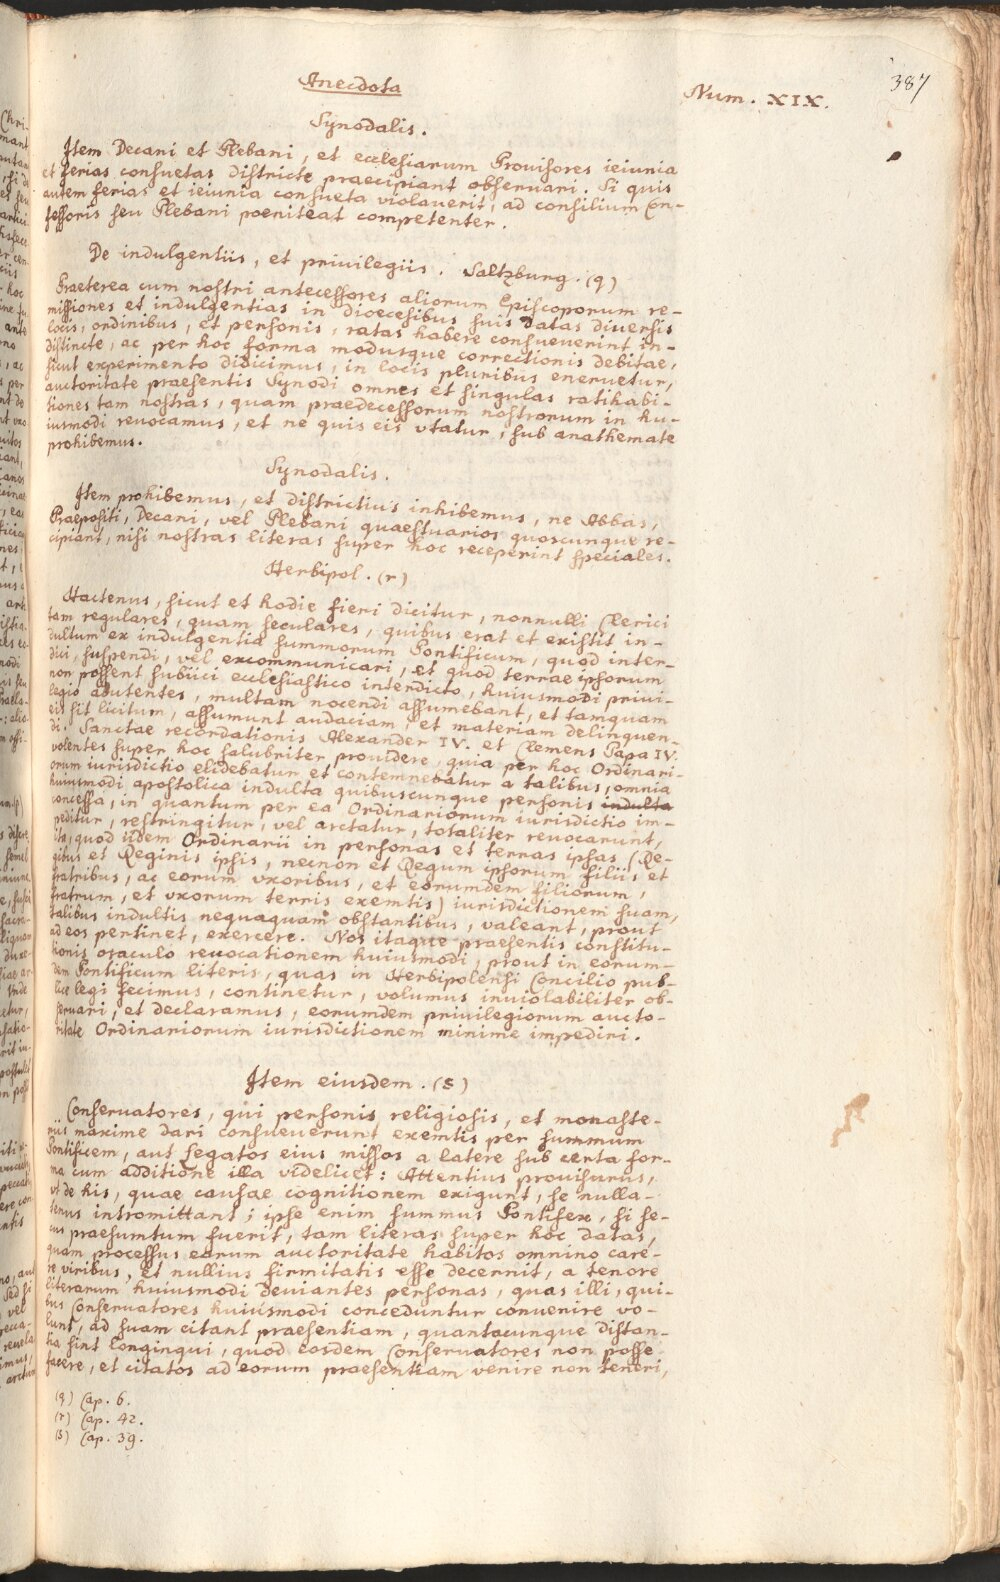 387
Anecdota
Num. XIX.
Synodalis.
Item Decani et Plebani, et ecclesiarum Prouisores ieiunia
et ferias consuetas districte praecipiant obseruari. Si quis
autem ferias et ieiunia consueta violauerit, ad consilium Con-
fessoris seu Plebani poeniteat competenter.
De indulgentiis, et privilegiis. Saltzburg. (q)
Praeterea cum nostri antecessores aliorum Episcoporum re-
missiones et indulgentias in dioecesibus suis datas diuersis
locis, ordinibus, et personis, ratas habere consueuerint in-
distincte, ac per hoc forma modusque correctionis debitae,
sicut experimento didicimus, in locis pluribus eneruetur,
auctoritate praesentis Synodi omnes et singulas ratihabi-
tiones tam nostras, quam praedecessorum nostrorum in hu-
iusmodi reuocamus, et ne quis eis vtatur, sub anathemate
prohibemus.
Synodalis.
Item prohibemus, et districtius inhibemus, ne Abbas,
Praepositi, Decani, vel Plebani quaestuarios quoscunque re-
cipiant, nisi nostras literas super hoc receperint speciales.
Herbipol. (r)
Hactenus, sicut et hodie fieri dicitur, nonnulli Clerici
tam regulares, quam seculares, quibus erat et existit in-
dultum ex indulgentia summorum Pontificum, quod inter-
dici, suspendi, vel excommunicari, et quod terrae ipsorum
non possent subiici ecclesiastico interdicto, huiusmodi priui-
legio abutentes, multam nocendi assumebant, et tamquam
eis sit licitum, assumunt audaciam et materiam delinquen-
di. Sanctae recordationis Alexander IV. et Clemens Papa IV.
volentes super hoc salubriter prouidere, quia per hoc Ordinari-
orum iurisdictio elidebatur et contemnebatur a talibus, omnia
huiusmodi apostolica indulta quibuscunque personis indulta
concessa, in quantum per ea Ordinariorum iurisdictio im-
peditur, restringitur, vel arctatur, totaliter reuocarunt,
ita, quod iidem Ordinarii in personas et terras ipsas (Re-
gibus et Reginis ipsis, necnon et Regum ipsorum filiis et
fratribus, ac eorum vxoribus, et eorumdem filiorum,
fratrum, et vxorum terris exemtis) iurisdictionem suam,
talibus indultis nequaquam obstantibus, valeant, prout
ad eos pertinet, exercere. Nos itaque praesentis constitu-
tionis oraculo reuocationem huiusmodi, prout in eorum-
dem Pontificum literis, quas in Herbipolensi Concilio pub-
lice legi fecimus, continetur, volumus inuiolabiliter ob-
seruari, et declaramus, eorumdem privilegiorum aucto-
ritate Ordinariorum iurisdictionem minime impediri.
Item eiusdem. (s)
Conseruatores, qui personis religiosis, et monaste-
riis maxime dari consueuerunt exemtis per summum
Pontificem, aut Legatos eius missos a latere sub certa for-
ma cum additione illa videlicet: Attentius prouisurus,
vt de his, quae causae cognitionem exigunt, se nulla-
tenus intromittant; ipse enim summus Pontifex, si se-
cus praesumtum fuerit, tam literas super hoc datas,
quam processus earum auctoritate habitos omnino care-
re viribus, et nullius firmitatis esse decernit, a tenore
literarum huiusmodi deuiantes personas, quas illi, qui-
bus Conseruatores huiusmodi conceduntur conuenire vo-
lunt, ad suam citant praesentiam, quantacunque distan-
tia sint longinqui, quod eosdem Conseruatores non posse
facere, et citatos ad eorum praesentiam venire non teneri,
(q) Cap. 6.
(r) Cap. 42.
(s) Cap. 39.